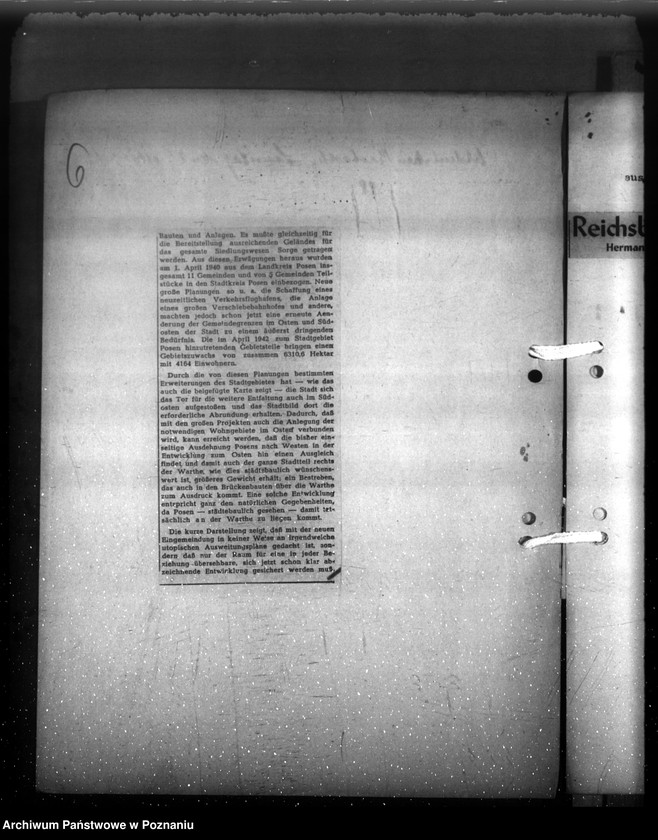 6
Bauten und Anlagen. Es mußte gleichzeitig für
die Bereitstellung ausreichenden Geländes für
das gesamte Siedlungswesen Sorge getragen
werden. Aus diesen Erwägungen heraus wurden
am 1. April 1940 aus dem Landkreis Posen ins-
gesamt 11 Gemeinden und von Gemeinden Teil-
stücke in den Stadtkreis Posen einbezogen. Neue
große Planungen so u. a. die Schaffung eines
neuzeitlichen Verkehrsflughafens, die Anlage
eines großen Verschiebebahnhofes und andere,
machten jedoch schon jetzt eine erneute Aen-
derung der Gemeindegrenzen im Osten und Süd-
osten der Stadt zu einem äußerst dringenden
Bedürfnis. Die im April 1942 zum Stadtgebiet
Posen hinzutretenden Gebietsteile bringen einen
Gebietszuwachs von zusammen 6310,6 Hektar
mit 4164 Einwohnern.
Durch die von diesen Planungen bestimmten
Erweiterungen des Stadtgebietes hat — wie das
auch die beigefügte Karte zeigt — die Stadt sich
das Tor für die weitere Entfaltung auch im Süd-
osten aufgestoßen und das Stadtbild dort die
erforderliche Abrundung erhalten. Dadurch, daß
mit den großen Projekten auch die Anlegung der
notwendigen Wohngebiete im Osten verbunden
wird, kann erreicht werden, daß die bisher ein-
seitige Ausdehnung Posens nach Westen in der
Entwicklung zum Osten hin einen Ausgleich
findet, und damit auch der ganze Stadtteil rechts
der Warthe, wie dies städtebaulich wünschens-
wert ist, größeres Gewicht erhält; ein Bestreben,
das auch in den Brückenbauten über die Warthe
zum Ausdruck kommt. Eine solche Entwicklung
entspricht ganz den natürlichen Gegebenheiten,
da Posen — städtebaulich gesehen — damit tat-
sächlich an der Warthe zu liegen kommt.
Die kurze Darstellung zeigt, daß mit der neuen
Eingemeindung in keiner Weise an irgendwelche
utopischen Ausweitungspläne gedacht ist, son-
dern daß nur der Raum für eine in jeder Be-
ziehung übersehbare, sich jetzt schon klar ab-
zeichnende Entwicklung gesichert werden muß.
aus
Reichsb
Herman
Archiwum Państwowe w Poznaniu